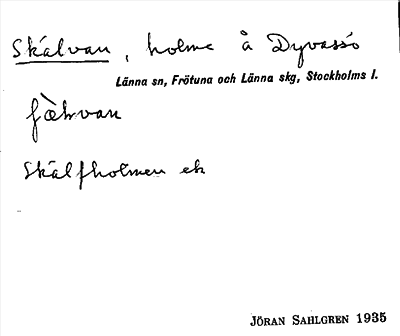 Skålvan, holme å Dyvassö
Länna sn, Frötuna och Länna skg, Stockholms l.
Skålfholmen ek
JÖRAN SAHLGREN 1935